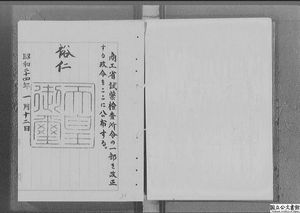 商工省試薬検査所令の一部を改正
する政令をここに公布する。
裕仁
天皇御璽
昭和二十四年一月十二日
国立公文書館